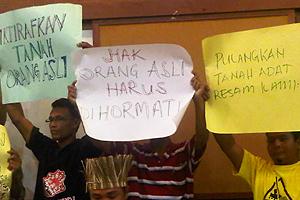 IKTIRAFKAN
TANAH
ORANG ASLI
HAK
ORANG ASLI
HARUS
DIHORMATI
PULANGKAN
TANAH ADAT
RESAM KAMI